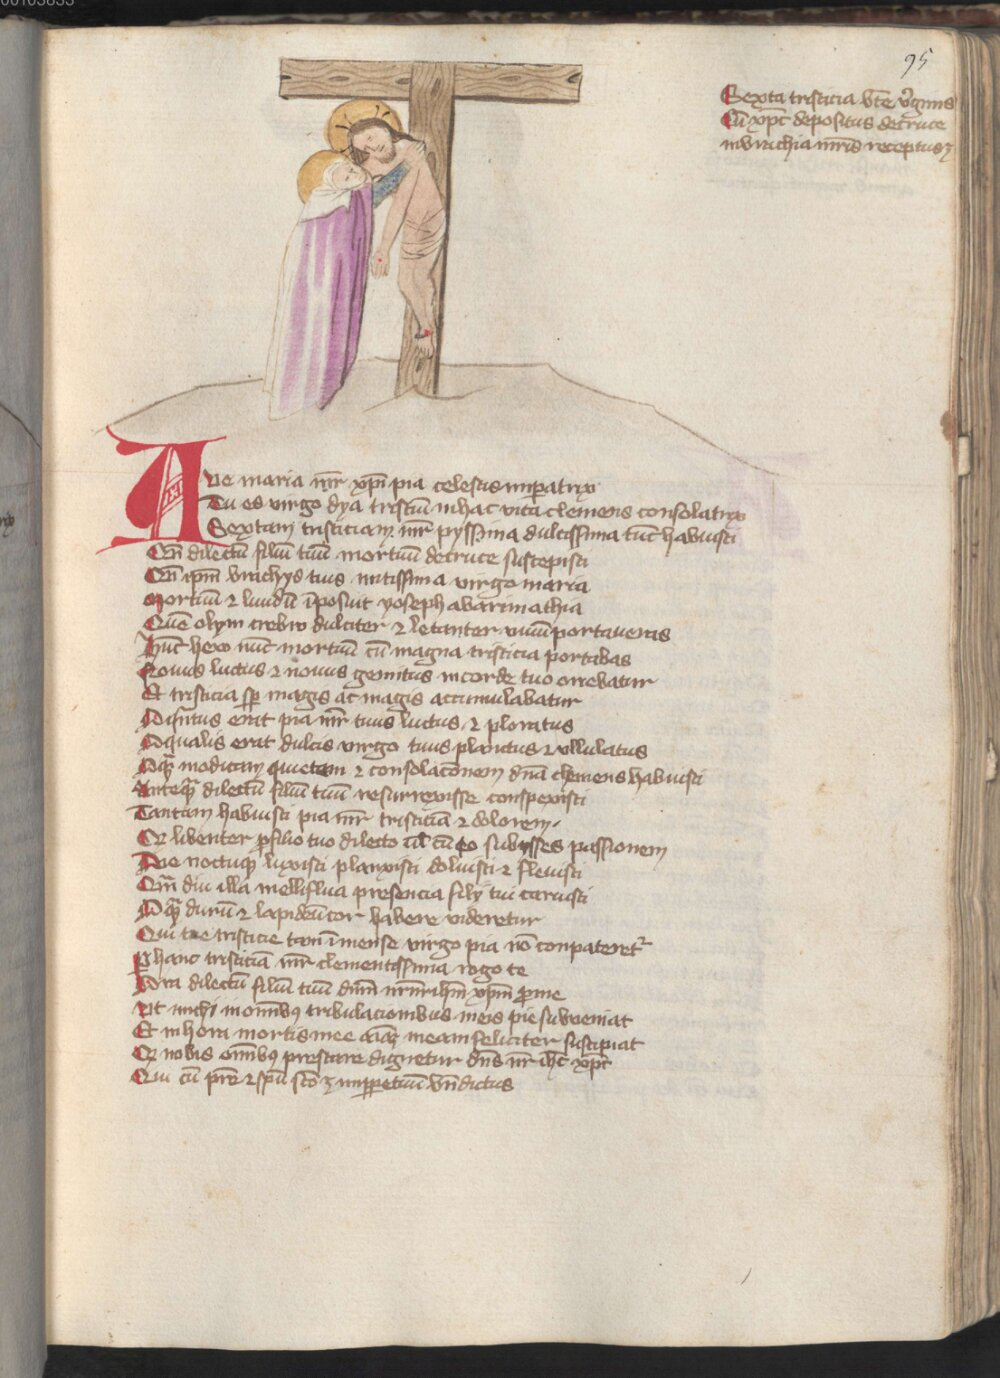 95
Sexta tristicia bte virginis
Cu xpc depositus de cruce
in brachia mris receptus
Ave maria mr xpi pia celestis imperatrix
Tu es virgo dya tristiu in hac vita clemens consolatrix
Sextam tristiciam mr pyssima dulcissima tuc habuisti
Cu dilectu filiu tuu mortuu de cruce suscepisti
Cu ipm brachys tuis mitissima virgo maria
Mortuu et liuidu iposuit yoseph ab arimathia
Que olym crebro dulciter et letanter viuu portaueras
Huc heu nuc mortuu cu magna tristicia portabas
Nouus luctus et nouus gemitus in corde tuo orrebatur
Et tristicia sp magis ac magis accumulabatur
O qntus erat pia mr tuus luctus et ploratus
O qualis erat dulcis virgo tuus planctus et vllulatus
O qua modicam quietem et consolacionem dna clemens habuisti
Anteqa dilectu filiu tuu resurrexisse conspexisti
Tantam habuisti pia mr tristicia et dolorem
Qr libenter p filio tuo dilecto cu eo subisses passionem
Die noctuq luxisti planxisti doluisti et fleuisti
Qm diu illa melliflua presencia filij tui caruisti
O qa duru et lapideu cor habere videretur
Qui tue tristicie tam imense virgo pia no conpateretr
P hanc tristicia mr clementissima rogo te
Ora dilectu filiu tuu dnm nrm ihm xpm pro me
Ut michi in omibus tribulacionibus meis pie subueniat
Et in hora mortis mee aiaz meam feliciter suscipiat
Qr nobis omibus prestare dignetur dns nr ihc xpc
Qui cu pre et spu sco est in ppetuum bndictus